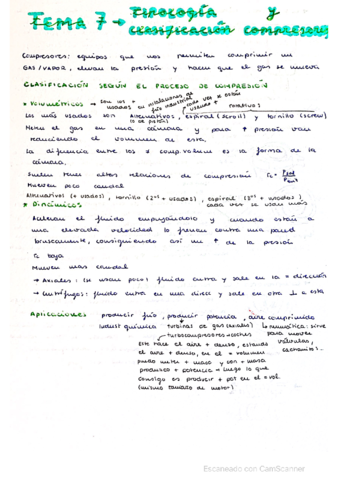 TEMA 7 → Tipología y clasificación compresores
Compresores: equipos que nos permiten comprimir un
GAS/VAPOR, elevan la presión y hacen que el gas se mueva
CLASIFICACIÓN SEGÚN EL PROCESO DE COMPRESIÓN
* VOLUMÉTRICOS → son los + usados en instalaciones de frío industrial
cada vez se están usando + rotativos)
Los más usados son Alternativos, espiral (scroll) y tornillo (screw)
(o de pistón)
Meten el gas en una cámara y para ↑ presión van
reduciendo el volumen de esta,
La diferencia entre los ≠ comp. volum es la forma de la
cámara,
Suelen tener altas relaciones de compresión
Mueven poco caudal
Alternativos (+ usados), tornillo (2º + usados), espiral (3º + usados)
cada vez se usan más
* DINÁMICOS
Aceleran el fluido empujándolo y cuando están a
una elevada velocidad lo frenan contra una pared
bruscamente, consiguiendo así un ↑ de la presión
rc baja
Mueven más caudal
→ Axiales: se usan poco; fluido entra y sale en la = dirección
→ Centrífugos: fluido entra en una direcc y sale en otra ⊥ a esta
Aplicaciones producir frío, producir potencia, aire comprimido
indust química turbinas de gas (axiales) ↳ neumática: sirve
→ turbocompresores → coches para mover
Esto hace el aire + denso, estando válvulas,
el aire + denso, en el = volumen cacharritos..
puedo meter + masa y con + masa
produzco + potencia → luego lo que
consigo es producir + pot en el = vol.
(mismo tamaño de motor)
Escaneado con CamScanner